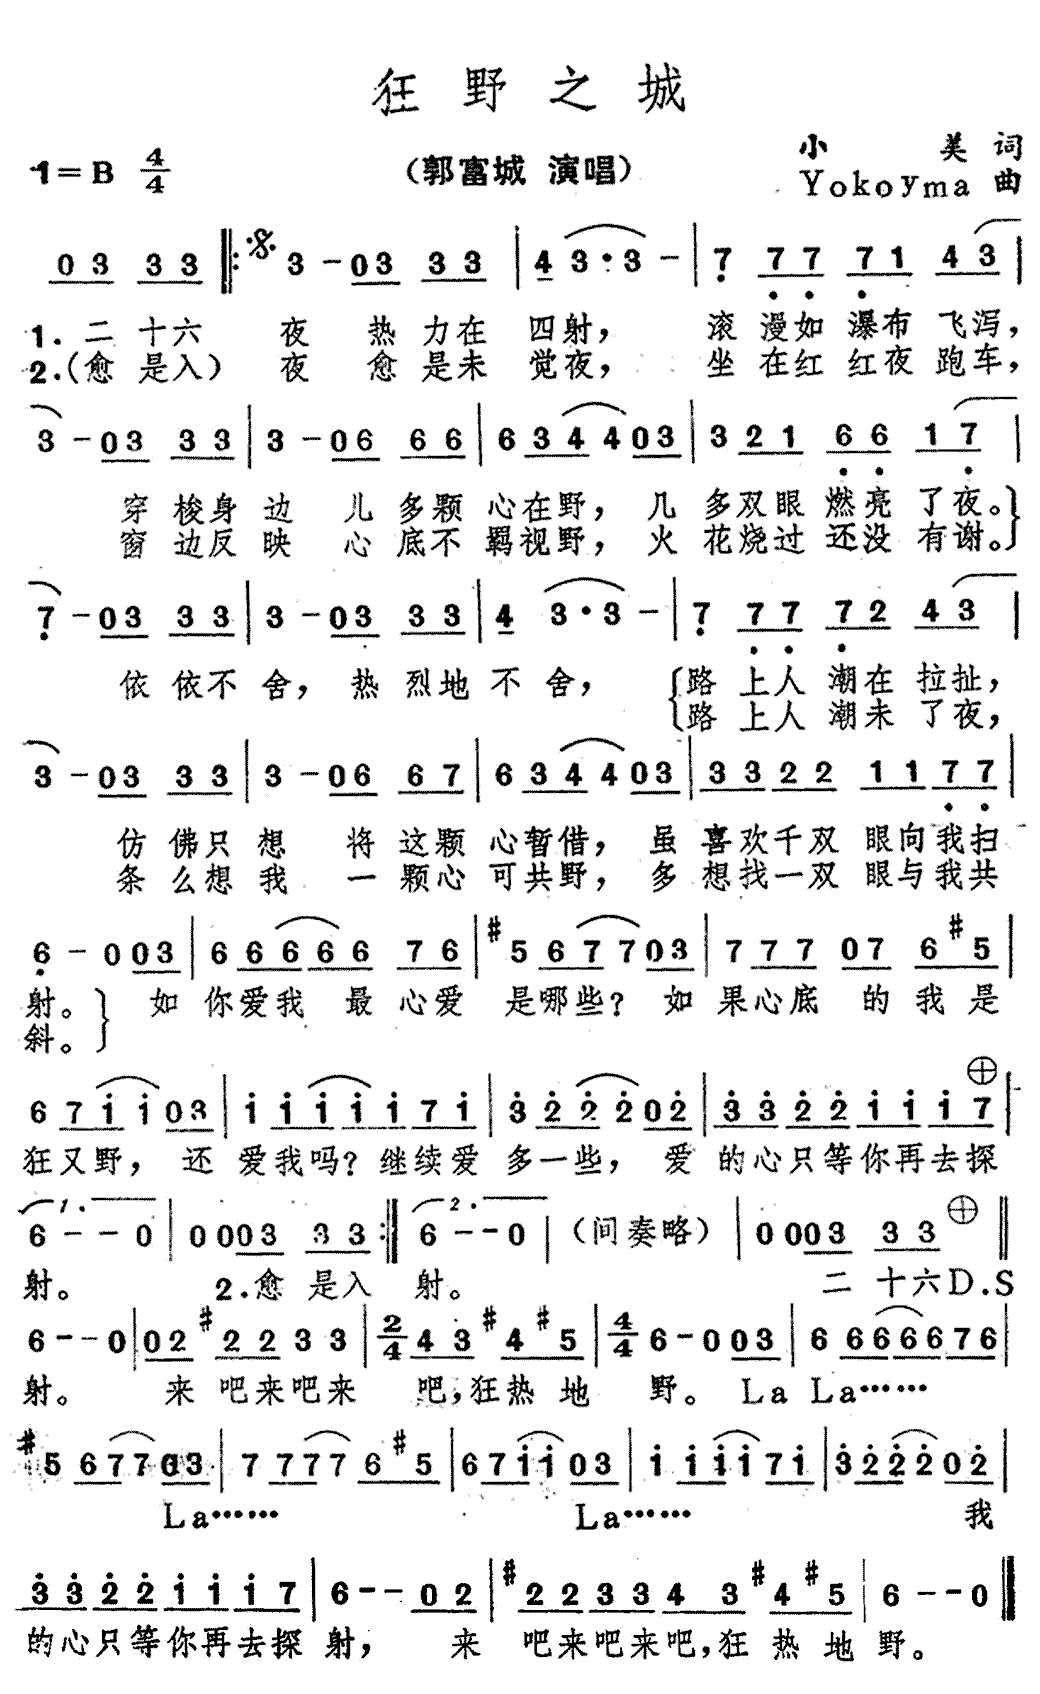 狂野之城
1=B 4/4 （郭富城 演唱） 小 美 词
Yokoyma 曲
0 3 3 3 ‖: 3 - 0 3 3 3 | 4 3 · 3 - | 7 7 7 7 1 4 3 |
1. 二 十六 夜 热 力在 四射， 滚 漫如 瀑布 飞泻，
2.（愈 是入） 夜 愈 是未 觉夜， 坐 在红 红夜 跑车，
3 - 0 3 3 3 | 3 - 0 6 6 6 | 6 3 4 4 0 3 | 3 2 1 6 6 1 7 |
穿 梭身 边 儿 多颗 心在野， 几 多双眼 燃亮 了夜。
窗 边反 映 心 底不 羁视野， 火 花烧过 还没 有谢。
7 - 0 3 3 3 | 3 - 0 3 3 3 | 4 3 · 3 - | 7 7 7 7 2 4 3 |
依 依不 舍， 热 烈地 不 舍， 路 上人 潮在 拉扯，
路 上人 潮未 了夜，
3 - 0 3 3 3 | 3 - 0 6 6 7 | 6 3 4 4 0 3 | 3 3 2 2 1 1 7 7 |
仿 佛只 想 将 这颗 心暂借， 虽 喜欢千双 眼向我扫
条 么想 我 一 颗心 可共野， 多 想找一双 眼与我共
6 - 0 0 3 | 6 6 6 6 6 7 6 | #5 6 7 7 0 3 | 7 7 7 0 7 6 #5 |
射。 如 你爱我 最 心爱 是哪些？ 如 果心底 的 我 是
斜。
6 7 1 1 0 3 | 1 1 1 1 1 1 7 1 | 3 2 2 2 0 2 | 3 3 2 2 1 1 1 7 |
狂又野， 还 爱我吗？继续爱 多一些， 爱 的心只等你再去探
1. 6 - - 0 | 0 0 0 3 3 3 :‖ 2. 6 - - 0 | （间奏略） | 0 0 0 3 3 3 ‖
射。 2.愈 是入 射。 二 十六D.S
6 - - 0 | 0 2 #2 2 3 3 | 2/4 4 3 #4 #5 | 4/4 6 - 0 0 3 | 6 6 6 6 6 7 6 |
射。 来 吧来吧来 吧，狂热 地 野。 La La……
#5 6 7 7 0 3 | 7 7 7 7 6 #5 | 6 7 1 1 0 3 | 1 1 1 1 1 7 1 | 3 2 2 2 0 2 |
La…… La…… 我
3 3 2 2 1 1 1 7 | 6 - - 0 2 | #2 2 3 3 4 3 #4 #5 | 6 - - 0 ‖
的心只等你再去探 射， 来 吧来吧来吧，狂 热 地 野。